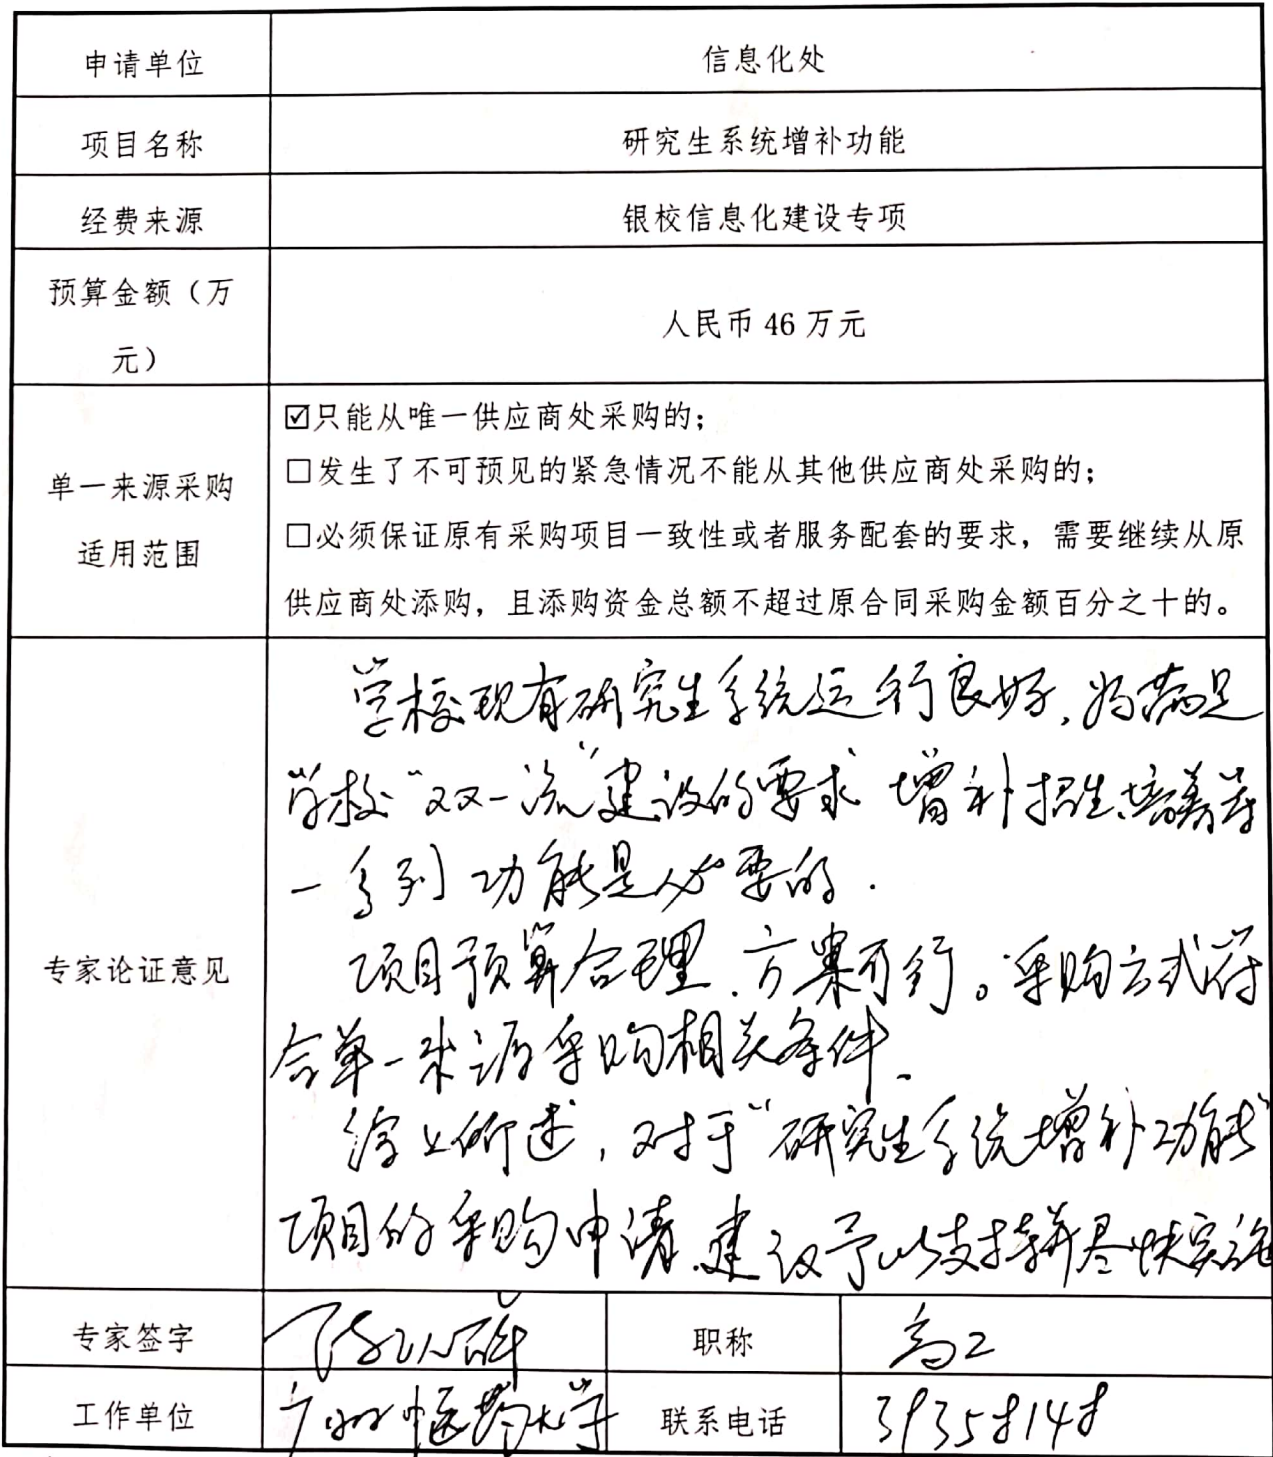 申请单位 信息化处
项目名称 研究生系统增补功能
经费来源 银校信息化建设专项
预算金额（万
元）
人民币 46 万元
单一来源采购
适用范围
☑只能从唯一供应商处采购的；
□发生了不可预见的紧急情况不能从其他供应商处采购的；
□必须保证原有采购项目一致性或者服务配套的要求，需要继续从原
供应商处添购，且添购资金总额不超过原合同采购金额百分之十的。
专家论证意见
学校现有研究生系统运行良好，为满足
学校“双一流”建设的要求 增补招生、培养等
一系列功能是必要的.
项目预算合理、方案可行。采购方式符
合单一来源采购相关条件.
综上所述，对于“研究生系统增补功能”
项目的采购申请，建议予以支持并尽快实施
专家签字 职称 高工
工作单位 广州中医药大学 联系电话 39358148